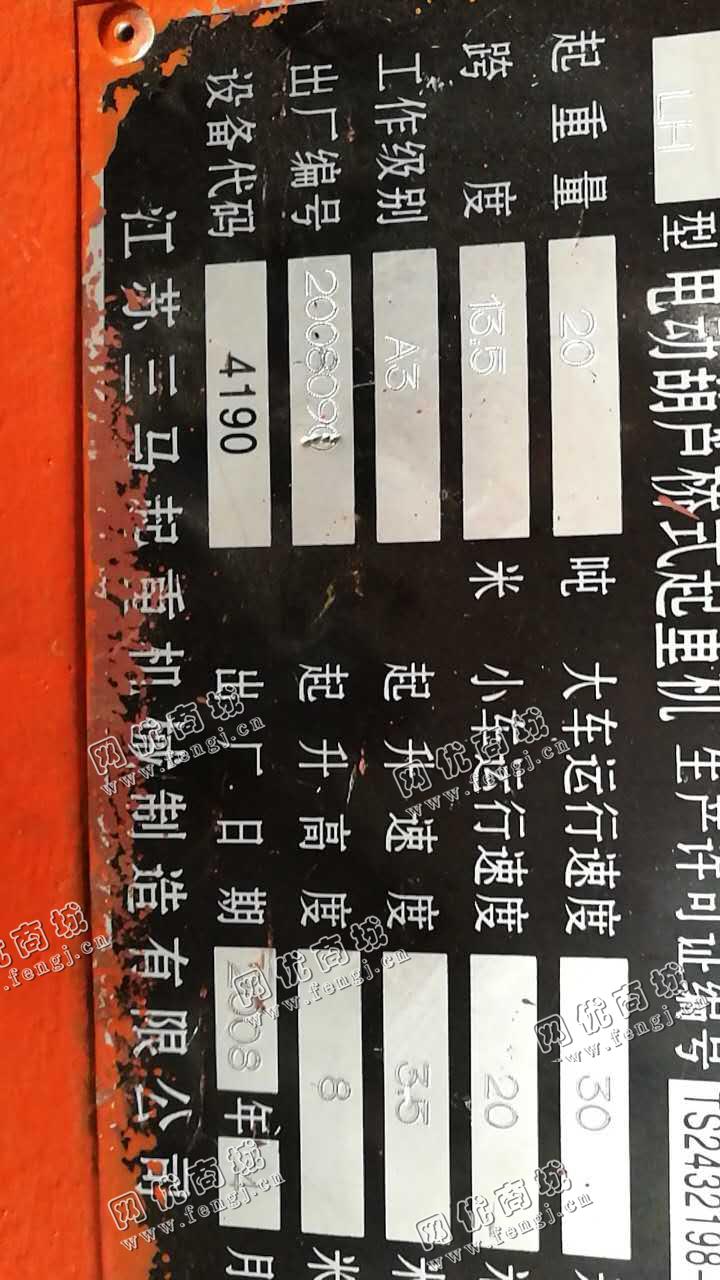 LH 型电动葫芦桥式起重机 生产许可证编号 TS2432198-
起重量 20 吨 大车运行速度 30
跨度 15.5 米 小车运行速度 20
工作级别 A3 起升速度 3.5 米
出厂编号 2008090 起升高度 8 米
设备代码 4190 出厂日期 2008 年 4 月
江苏三马起重机械制造有限公司
网优商城
www.fengj.cn
网优商城
www.fengj.cn
网优商城
www.fengj.cn
网优商城
www.fengj.cn
网优商城
www.fengj.cn
网优商城
www.fengj.cn
网优商城
www.fengj.cn
网优商城
www.fengj.cn